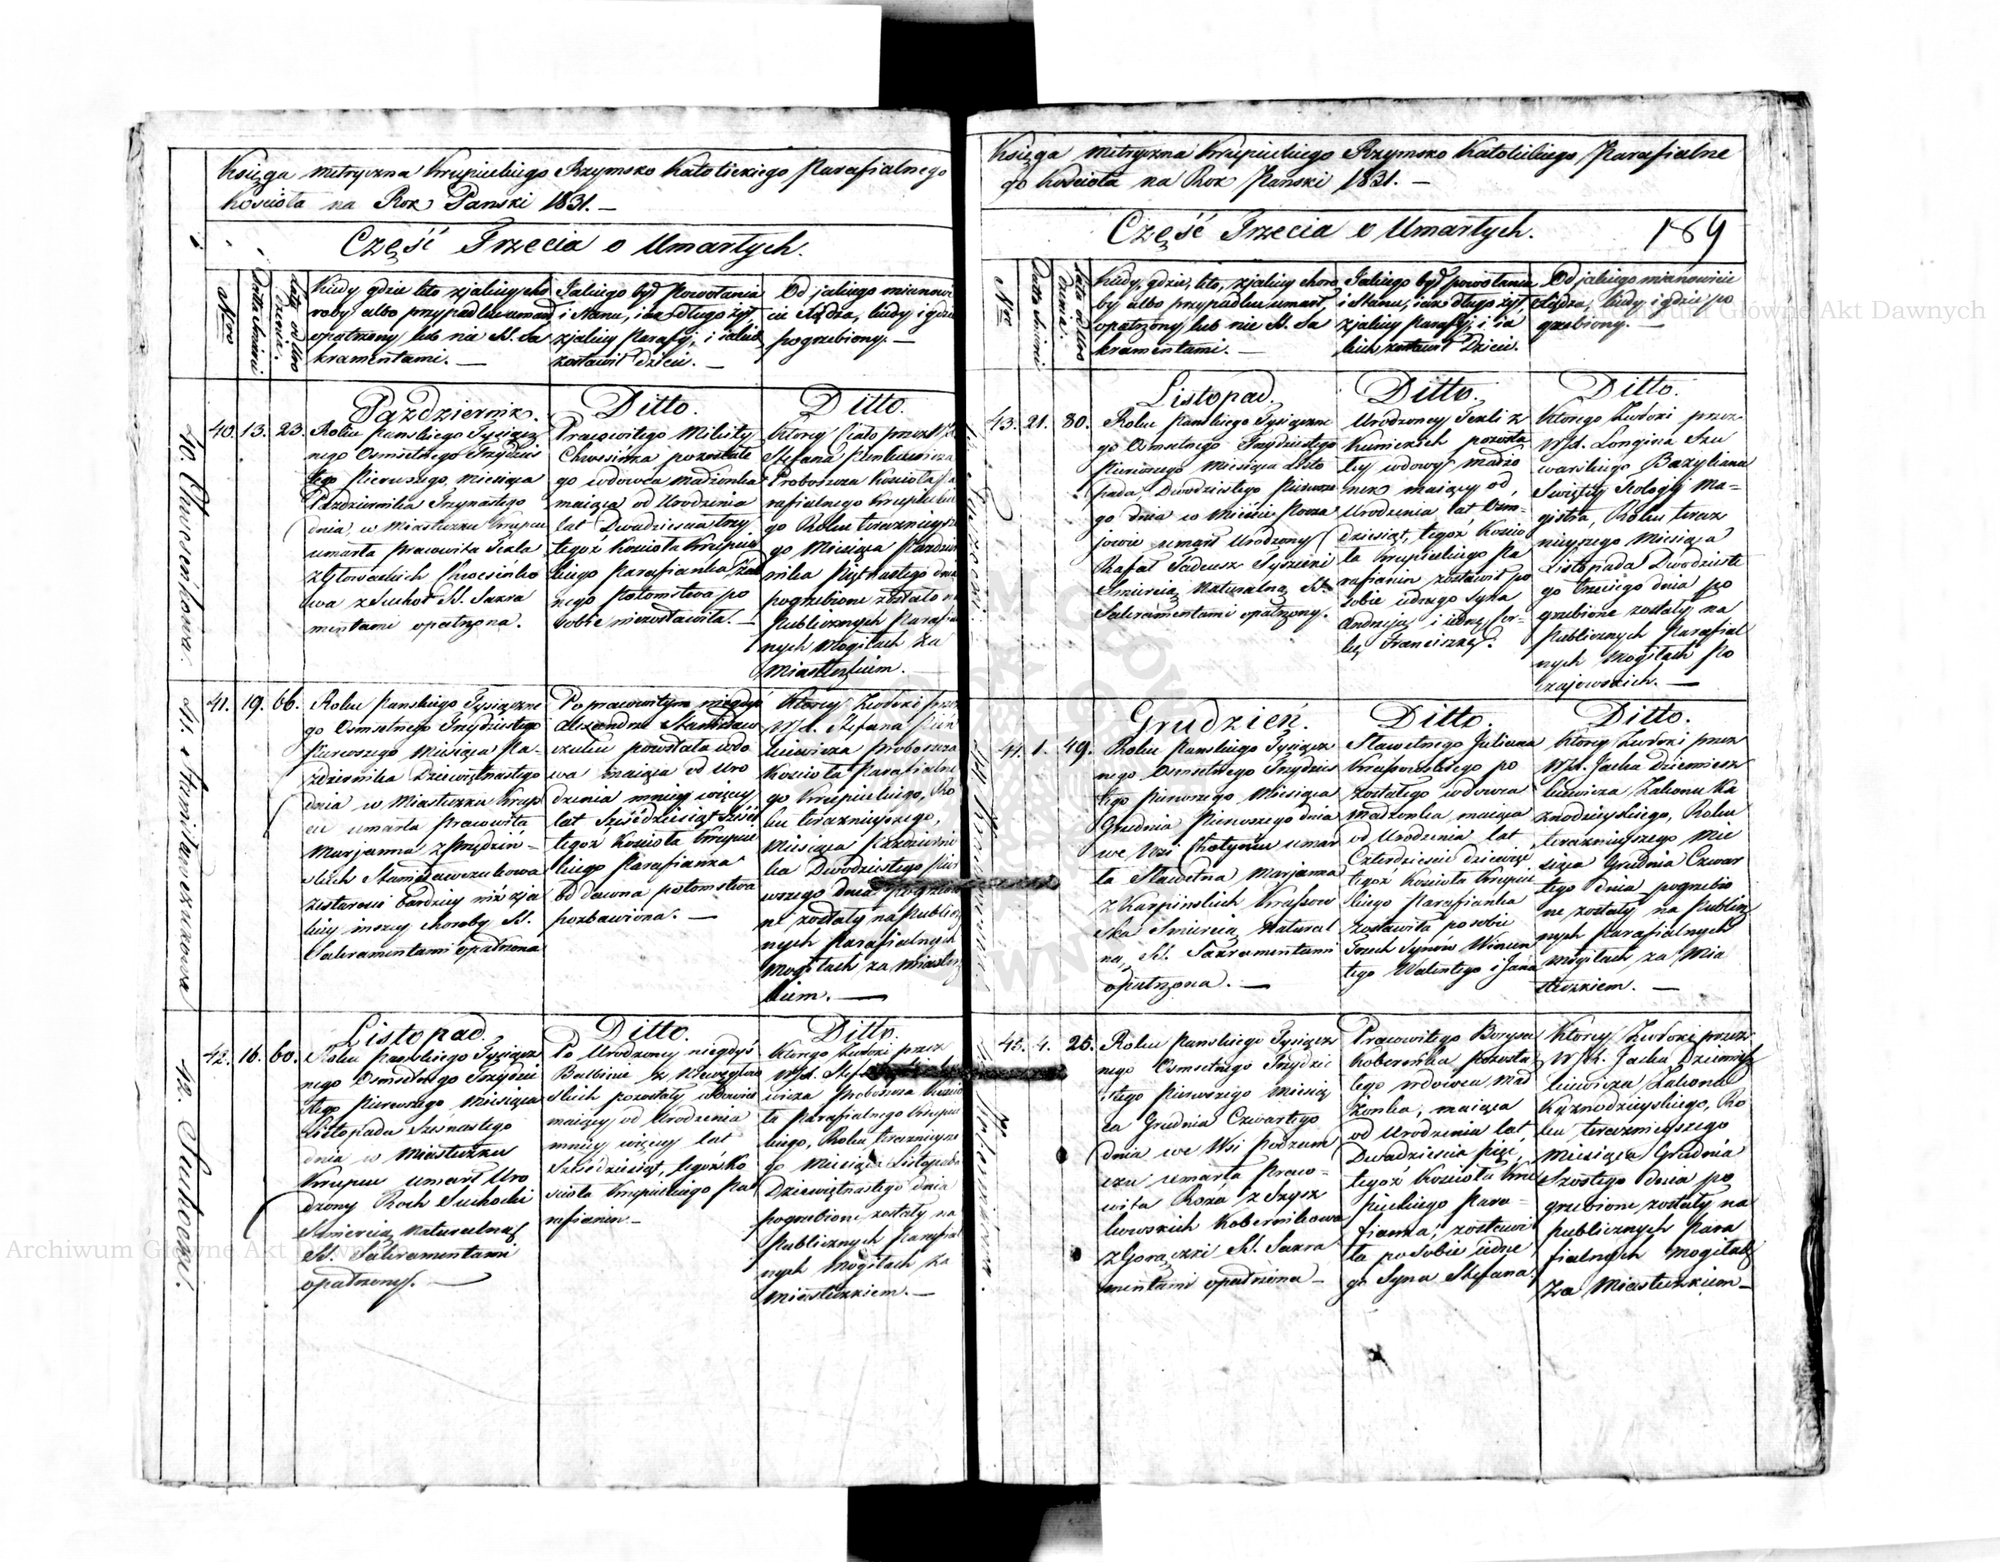 Księga metryczna Krupieckiego Rzymsko Katolickiego Parafialnego
Kościoła na Rok Panski 1831. —
Część Trzecia o Umarłych.
Nro
Data śmierci
Kiedy, gdzie, kto z jakiey cho
roby albo przypadku umarł,
opatrzony lub nie SS. Sa
kramentami. —
Jakiego był Powołania
i Stanu, i jak długo żył,
z jakiey Parafij, i jakich
zostawił dzieci. —
Od jakiego mianowi
cie Xiędza, kiedy i gdzie
pogrzebiony. —
40.
13.
23.
Październik.
Roku Panskiego Tysiącz
nego Osmsetnego Trzydzies
tego Pierwszego, miesiąca
Października Trzynastego
dnia w Miasteczku Krupcu
umarła Pracowita Tekla
z Głowackich Chwesińko
wa z Suchot SS. Sakra
mentami opatrzona.
Ditto.
Pracowitego Mikity
Chwesińka pozostałe
go wdowca małżonka
maiąca od Urodzenia
lat Dwadzieścia trzy
tegoż Kościoła Krupiec
kiego Parafianka, żad
nego potomstwa po
sobie niezostawiła. —
Ditto.
Ktorey Ciało przez
Stefana Pienkiewicza
Proboszcza Kościoła Pa
rafialnego Krupieckie
go Roku teraznieysze
go Miesiąca Paździer
nika Piętnastego dnia
pogrzebione zostało na
Publicznych Parafial
nych Mogiłach za
Miasteczkiem.
41.
19.
66.
Roku Panskiego Tysiączne
go Osmsetnego Trzydziestego
Pierwszego Miesiąca Pa-
ździernika Dziewiętnastego
dnia w Miasteczku Krup
cu umarła Pracowita
Marjanna
Stanisławczukowa
z starości bardziey niż z ja
kiey inszey choroby SS.
Sakramentami opatrzona
Po pracowitym niegdyś
Alexandrze Stanisław
czuku pozostała wdo
wa maiąca od Uro
dzenia mniey więcey
lat Sześćdziesiąt Sześć
tegoż Kościoła Krupiec
kiego Parafianka
od dawna potomstwa
pozbawiona. —
Ktorey Zwłoki przez
WJX. Stefana Pień
kiewicza Proboszcza
Kościoła Parafialne
go Krupieckiego, Ro
ku teraznieyszego,
Miesiąca Październi
ka Dwudziestego Pier
wszego dnia pogrzebio
ne zostały na Publicz
nych Parafialnych
Mogiłach za Miastecz
kiem. —
42.
16.
60.
Listopad.
Roku Panskiego Tysiącz
nego Osmsetnego Trzydzie
stego Pierwszego Miesiąca
Listopada Szesnastego
dnia w Miasteczku
Krupcu umarł Uro
dzony Roch Suchocki
Smiercią naturalną
SS. Sakramentami
opatrzony. —
Ditto.
Po Urodzoney niegdyś
Balbinie z
skich pozostały wdowiec
maiący od Urodzenia
mniey więcey lat
Sześćdziesiąt, tegoż Ko
ścioła Krupieckiego Pa
rafianin —
Ditto.
Ktorego Zwłoki przez
WJX.
wicza Proboszcza Kościo
ła Parafialnego Krupiec
kiego, Roku teraznieysze
go Miesiąca Listopada
Dziewiętnastego dnia
pogrzebione zostały na
Publicznych Parafial
nych Mogiłach za
Miasteczkiem. —
40. Chwesińkowa.
41. Stanisławczukowa
42. Suchocki.
Księga metryczna Krupieckiego Rzymsko Katolickiego Parafialne
go Kościoła na Rok Panski 1831. —
Część Trzecia o Umarłych.
189
Nro
Data śmierci
Kiedy, gdzie, kto, z jakiey choro
by albo przypadku umarł,
opatrzony lub nie SS. Sa
kramentami. —
Jakiego był powołania
i Stanu, i jak długo żył
z jakiey Parafij, i ja
kich zostawił Dzieci.
Od jakiego mianowicie
Xiędza, kiedy i gdzie po
grzebiony. —
43.
21.
80.
Listopad.
Roku Panskiego Tysiączne
go Osmsetnego Trzydziestego
Pierwszego Miesiąca Listo
pada, Dwudziestego Pierwsze
go dnia w Mieście Pocza
jowie umarł Urodzony
Rafał Tadeusz
Smiercią Naturalną SS.
Sakramentami opatrzony.
Ditto.
Urodzoney Tekli z
pozosta
łey wdowy małżo
nek maiący od
Urodzenia lat Osm-
dziesiąt, tegoż Kościo
ła Krupieckiego Pa
rafianin zostawił po
sobie iednego Syna
Andrzeja i iedną Cor-
kę Franciszkę.
Ditto.
Ktorego Zwłoki przez
WJX. Longina Szu
warskiego Bazyliana
Swiętey Teologij Ma-
gistra, Roku teraz
nieyszego Miesiąca
Listopada Dwudzieste
go Trzeciego dnia po
grzebione zostały na
Publicznych Parafial
nych Mogiłach Po
czajowskich. —
44.
1.
49.
Grudzień.
Roku Panskiego Tysiącz
nego Osmsetnego Trzydzies
tego Pierwszego Miesiąca
Grudnia Pierwszego dnia
we Wsi Chotyniu umar
ła Sławetna Marjanna
z Karpinskich Krasow
ska Smiercią Natural
ną, SS. Sakramentami
opatrzona. —
Ditto.
Sławetnego Juliana
Krasowskiego po
zostałego wdowca
małżonka, maiąca
od Urodzenia lat
Czterdzieści dziewięć
tegoż Kościoła Krupiec
kiego Parafianka
zostawiła po sobie
Trzech Synow Wincen
tego Walentego i Jana
Ditto.
Ktorey Zwłoki przez
WJX. Jacka Dziemiesz
kiewicza Zakonu Ka
znodzieyskiego, Roku
teraznieyszego Mie
siąca Grudnia Czwar
tego dnia pogrzebio
ne zostały na Publicz
nych Parafialnych
Mogiłach za Mia
steczkiem. —
45.
4.
25.
Roku Panskiego Tysiącz
nego Osmsetnego Trzydzie
stego Pierwszego Miesią
ca Grudnia Czwartego
dnia we Wsi Podzam
czu umarła Praco-
wita Roza z Szysz
kowskich Kobernikowa
z Gorączki SS. Sakra
mentami opatrzona —
Pracowitego Borysa
Kobernika pozosta
łego wdowca, mał
żonka, maiąca
od Urodzenia lat
Dwadzieścia pięć,
tegoż Kościoła Kru
pieckiego Para-
fianka, zostawi
ła po sobie iedne
go Syna Stefana.
Ktorey Zwłoki przez
WJX. Jacka Dziemiesz
kiewicza Zakonu
Kaznodzieyskiego, Ro
ku teraznieyszego
Miesiąca Grudnia
Szostego dnia po
grzebione zostały na
publicznych Para
fialnych Mogiłach
za Miasteczkiem —
Archiwum Główne Akt Dawnych
Archiwum Główne Akt Dawnych